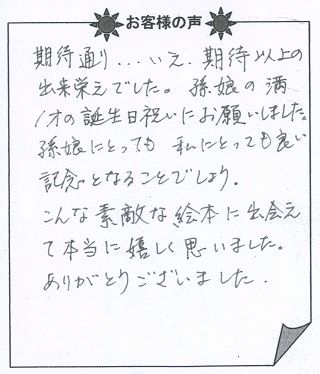 お客様の声
期待通り...いえ、期待以上の
出来栄えでした。孫娘の満
1才の誕生日祝いにお願いしました。
孫娘にとっても 私にとっても良い
記念となることでしょう。
こんな素敵な絵本に出会え
て本当に嬉しく思いました。
ありがとうございました.